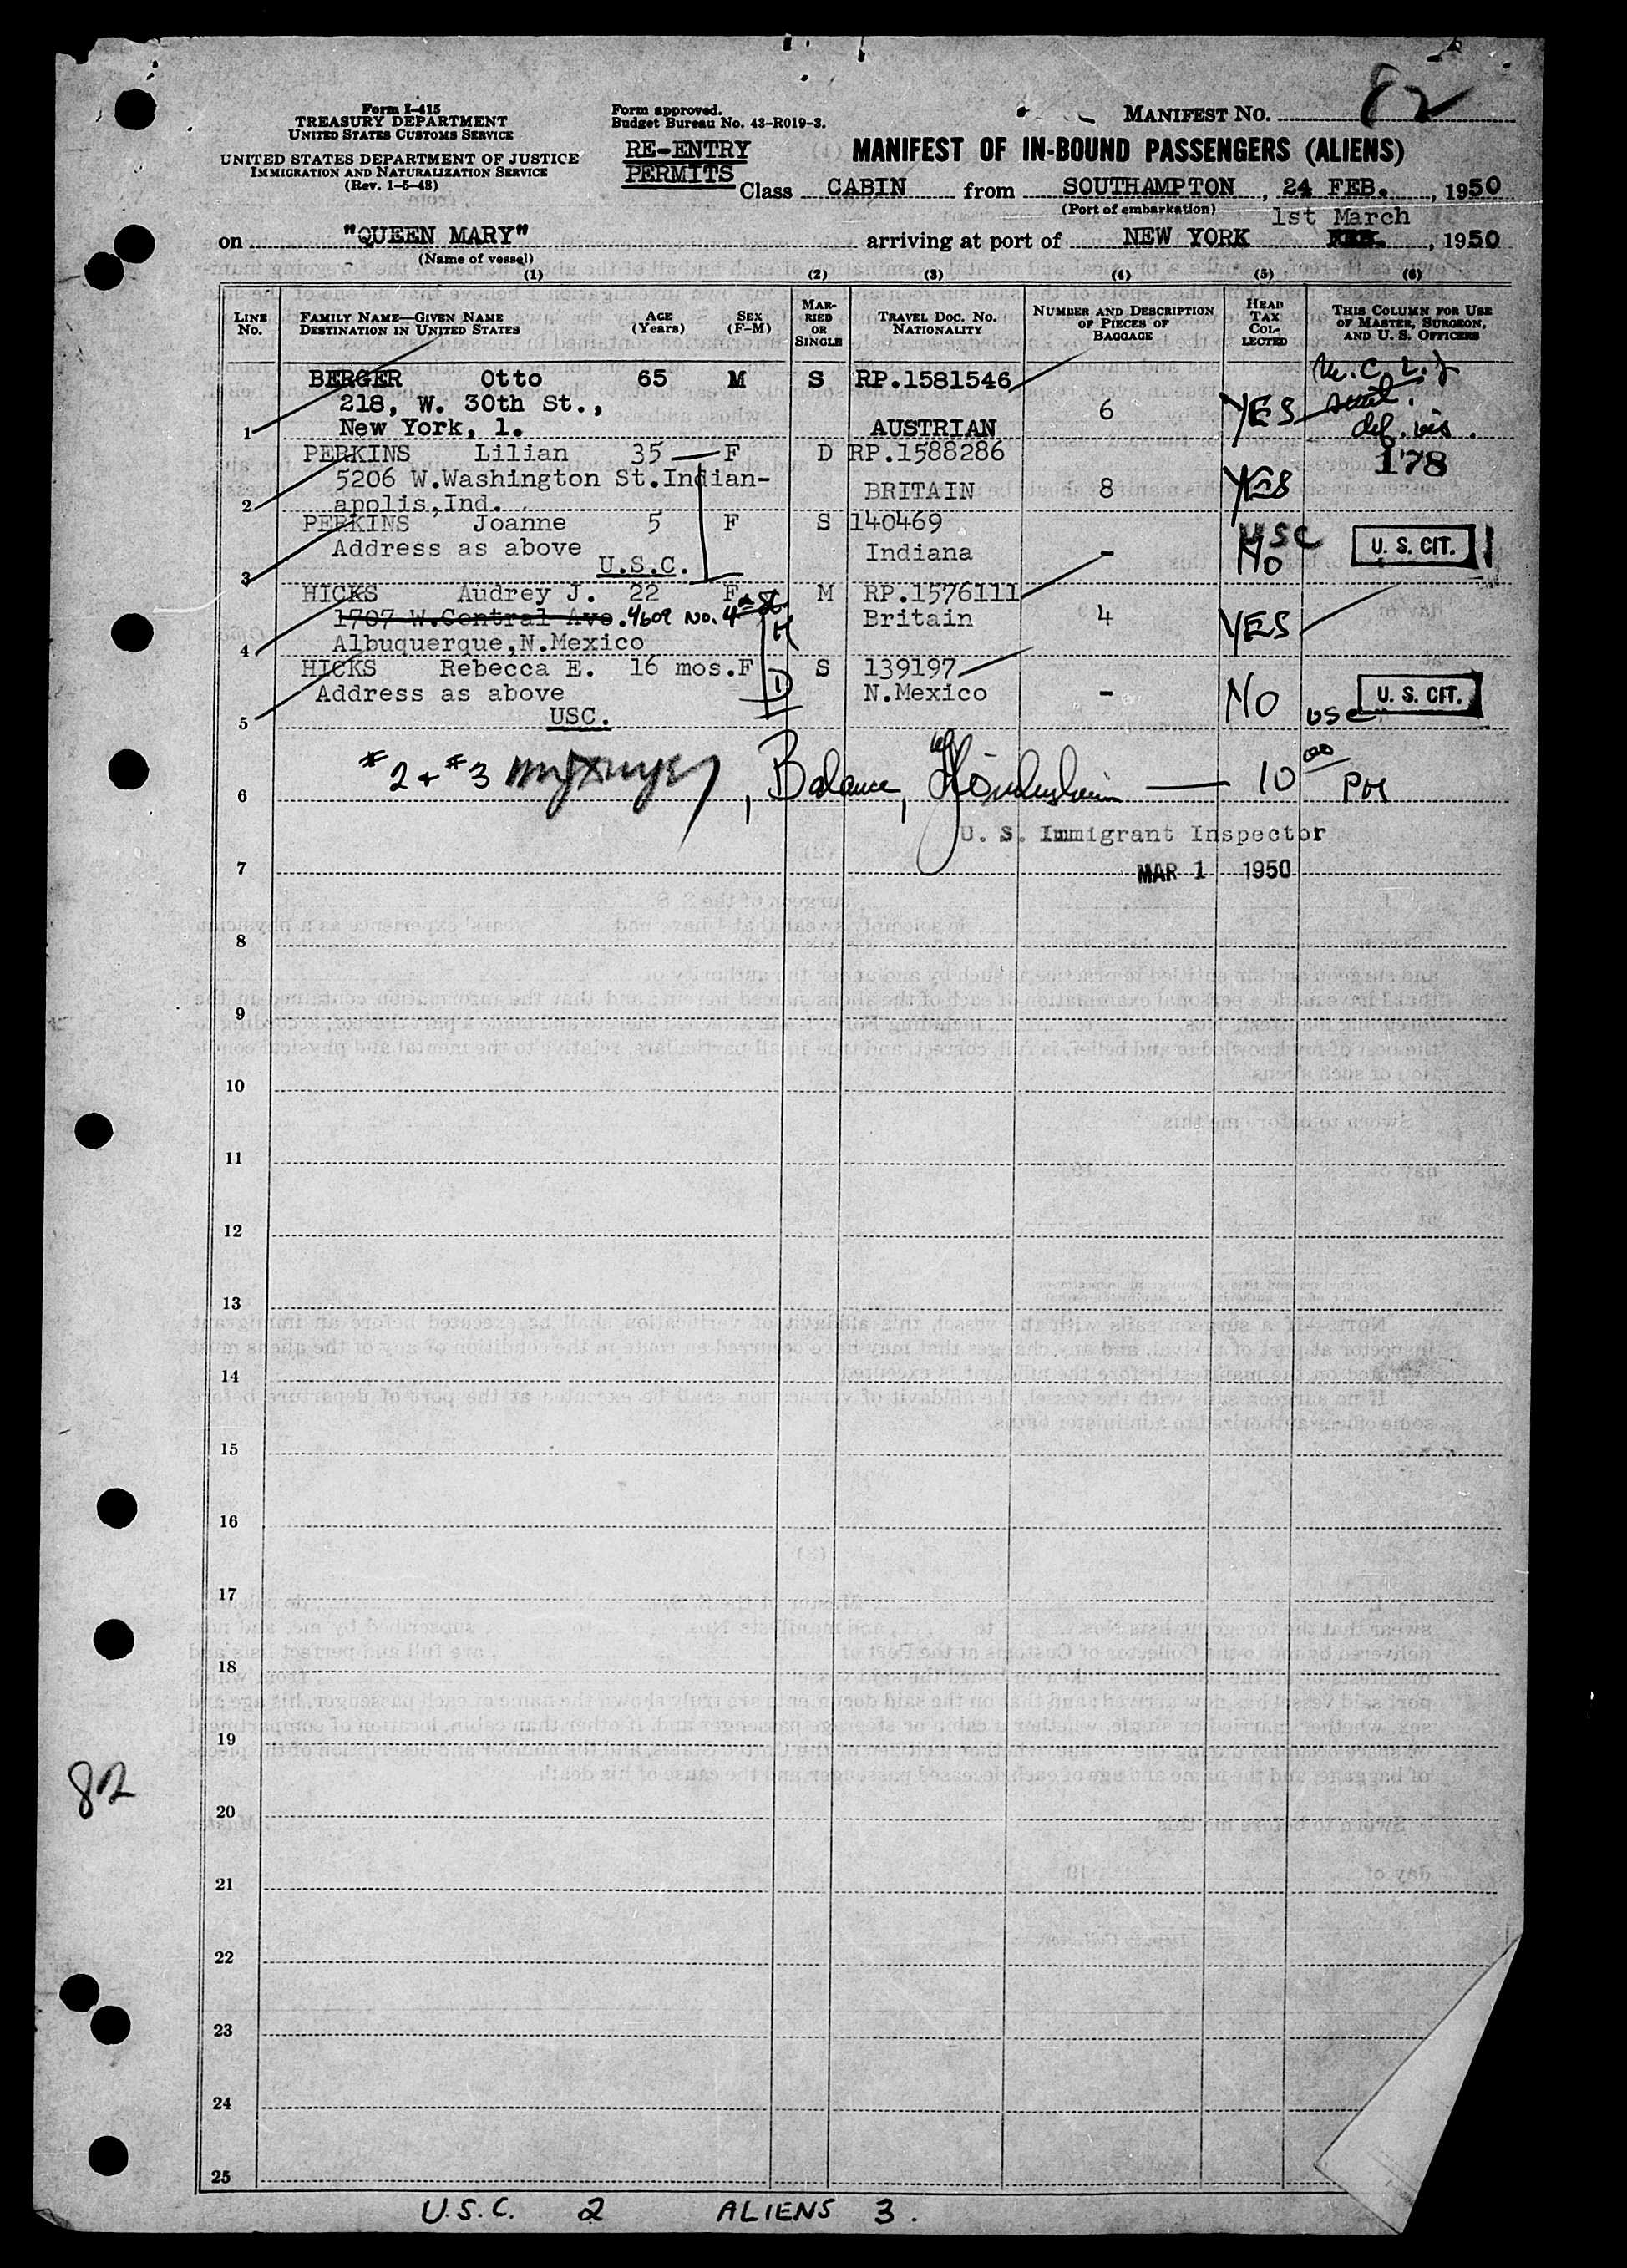 82
Form I-415
TREASURY DEPARTMENT
UNITED STATES CUSTOMS SERVICE
UNITED STATES DEPARTMENT OF JUSTICE
IMMIGRATION AND NATURALIZATION SERVICE
(Rev. 1-5-48)
Form approved.
Budget Bureau No. 43-R019-3.
RE-ENTRY
PERMITS
MANIFEST NO.
MANIFEST OF IN-BOUND PASSENGERS (ALIENS)
Class CABIN from SOUTHAMPTON, 24 FEB., 1950
(Port of embarkation)
1st March
on "QUEEN MARY" arriving at port of NEW YORK FEB., 1950
(Name of vessel)
(1) (2) (3) (4) (5) (6)
LINE No. FAMILY NAME—GIVEN NAME DESTINATION IN UNITED STATES AGE (Years) SEX (F-M) MARRIED OR SINGLE TRAVEL DOC. NO. NATIONALITY NUMBER AND DESCRIPTION OF PIECES OF BAGGAGE HEAD TAX COLLECTED THIS COLUMN FOR USE OF MASTER, SURGEON, AND U. S. OFFICERS
BERGER Otto 65 M S RP.1581546
218, W. 30th St., 6 YES
1 New York, 1. AUSTRIAN def. vis.
PERKINS Lilian 35 F D RP.1588286 178
5206 W.Washington St.Indian- BRITAIN 8 YES
2 apolis,Ind.
PERKINS Joanne 5 F S 140469 USC
Address as above Indiana - No U. S. CIT.
3 U.S.C.
HICKS Audrey J. 22 F M RP.1576111
1707 W.Central Ave. 4609 No. 4th St. Britain 4 YES
4 Albuquerque,N.Mexico
HICKS Rebecca E. 16 mos.F S 139197
Address as above N.Mexico - NO USC U. S. CIT.
5 USC.
#2 + #3, Balance, 10 00 PM
6
U. S. Immigrant Inspector
7 MAR 1 1950
8
9
10
11
12
13
14
15
16
17
18
19
82
20
21
22
23
24
25
U.S.C. 2 ALIENS 3.